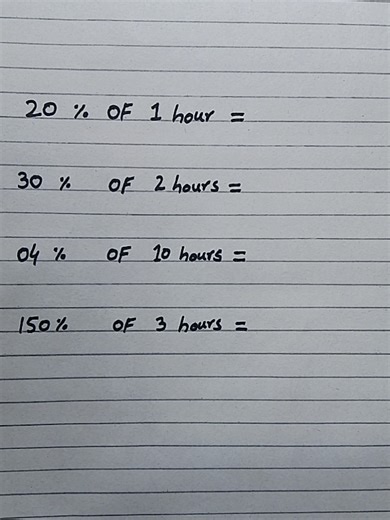 20 % OF 1 hour =
30 % OF 2 hours =
04 % OF 10 hours =
150% OF 3 hours =